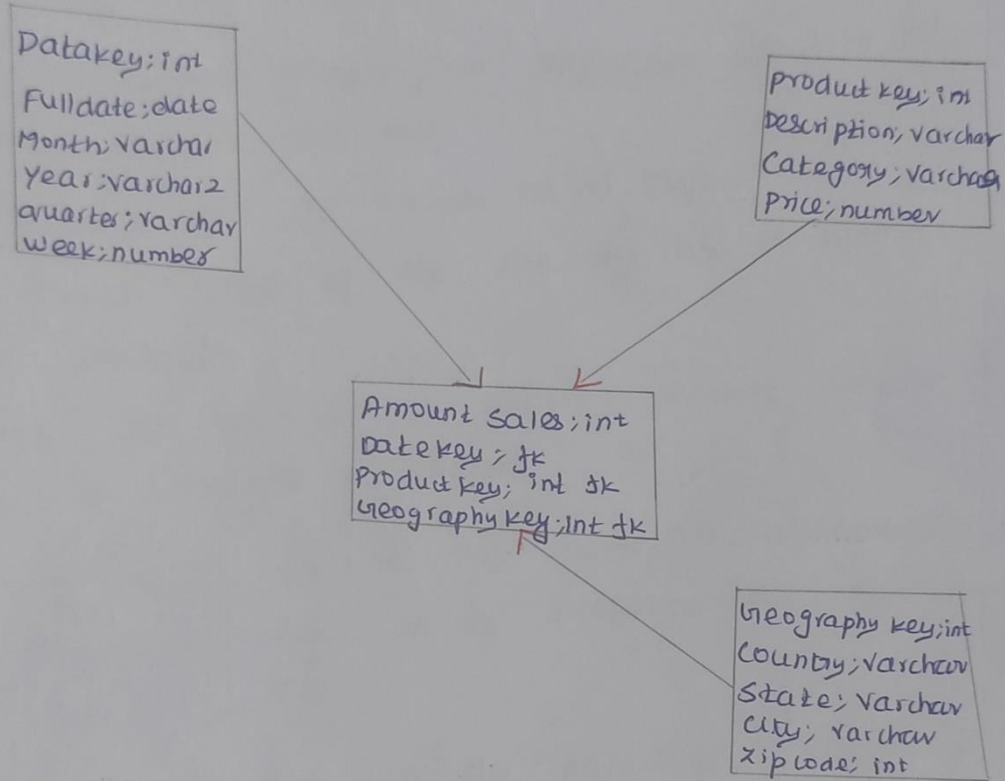 Datakey; int
Fulldate; date
Month; varchar
Year; varchar2
quarter; varchar
week; number
product key; int
Description; varchar
Category; varchar
Price; number
Amount sales; int
Datekey; fk
Product key; int fk
Geography key; int fk
Geography key; int
Country; varchar
State; varchar
City; varchar
zip code; int